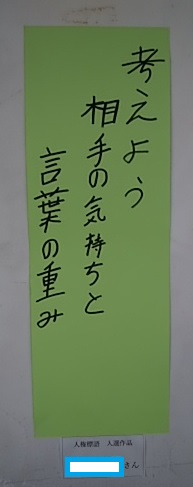 考えよう
相手の気持ちと
言葉の重み
人権標語　入選作品
さん